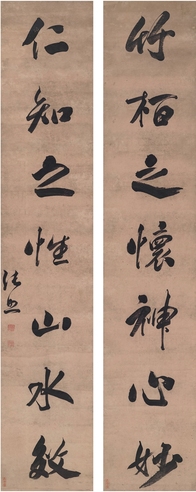 竹柏之懷神心妙
仁知之性山水效
張照